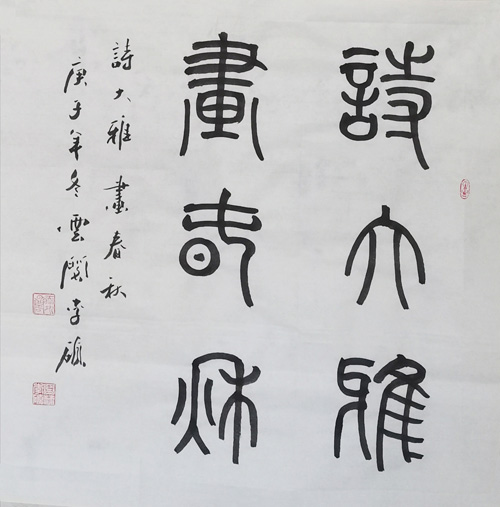 詩大雅
畫春秋
詩大雅 畫春秋
庚子年冬雲閒李碩